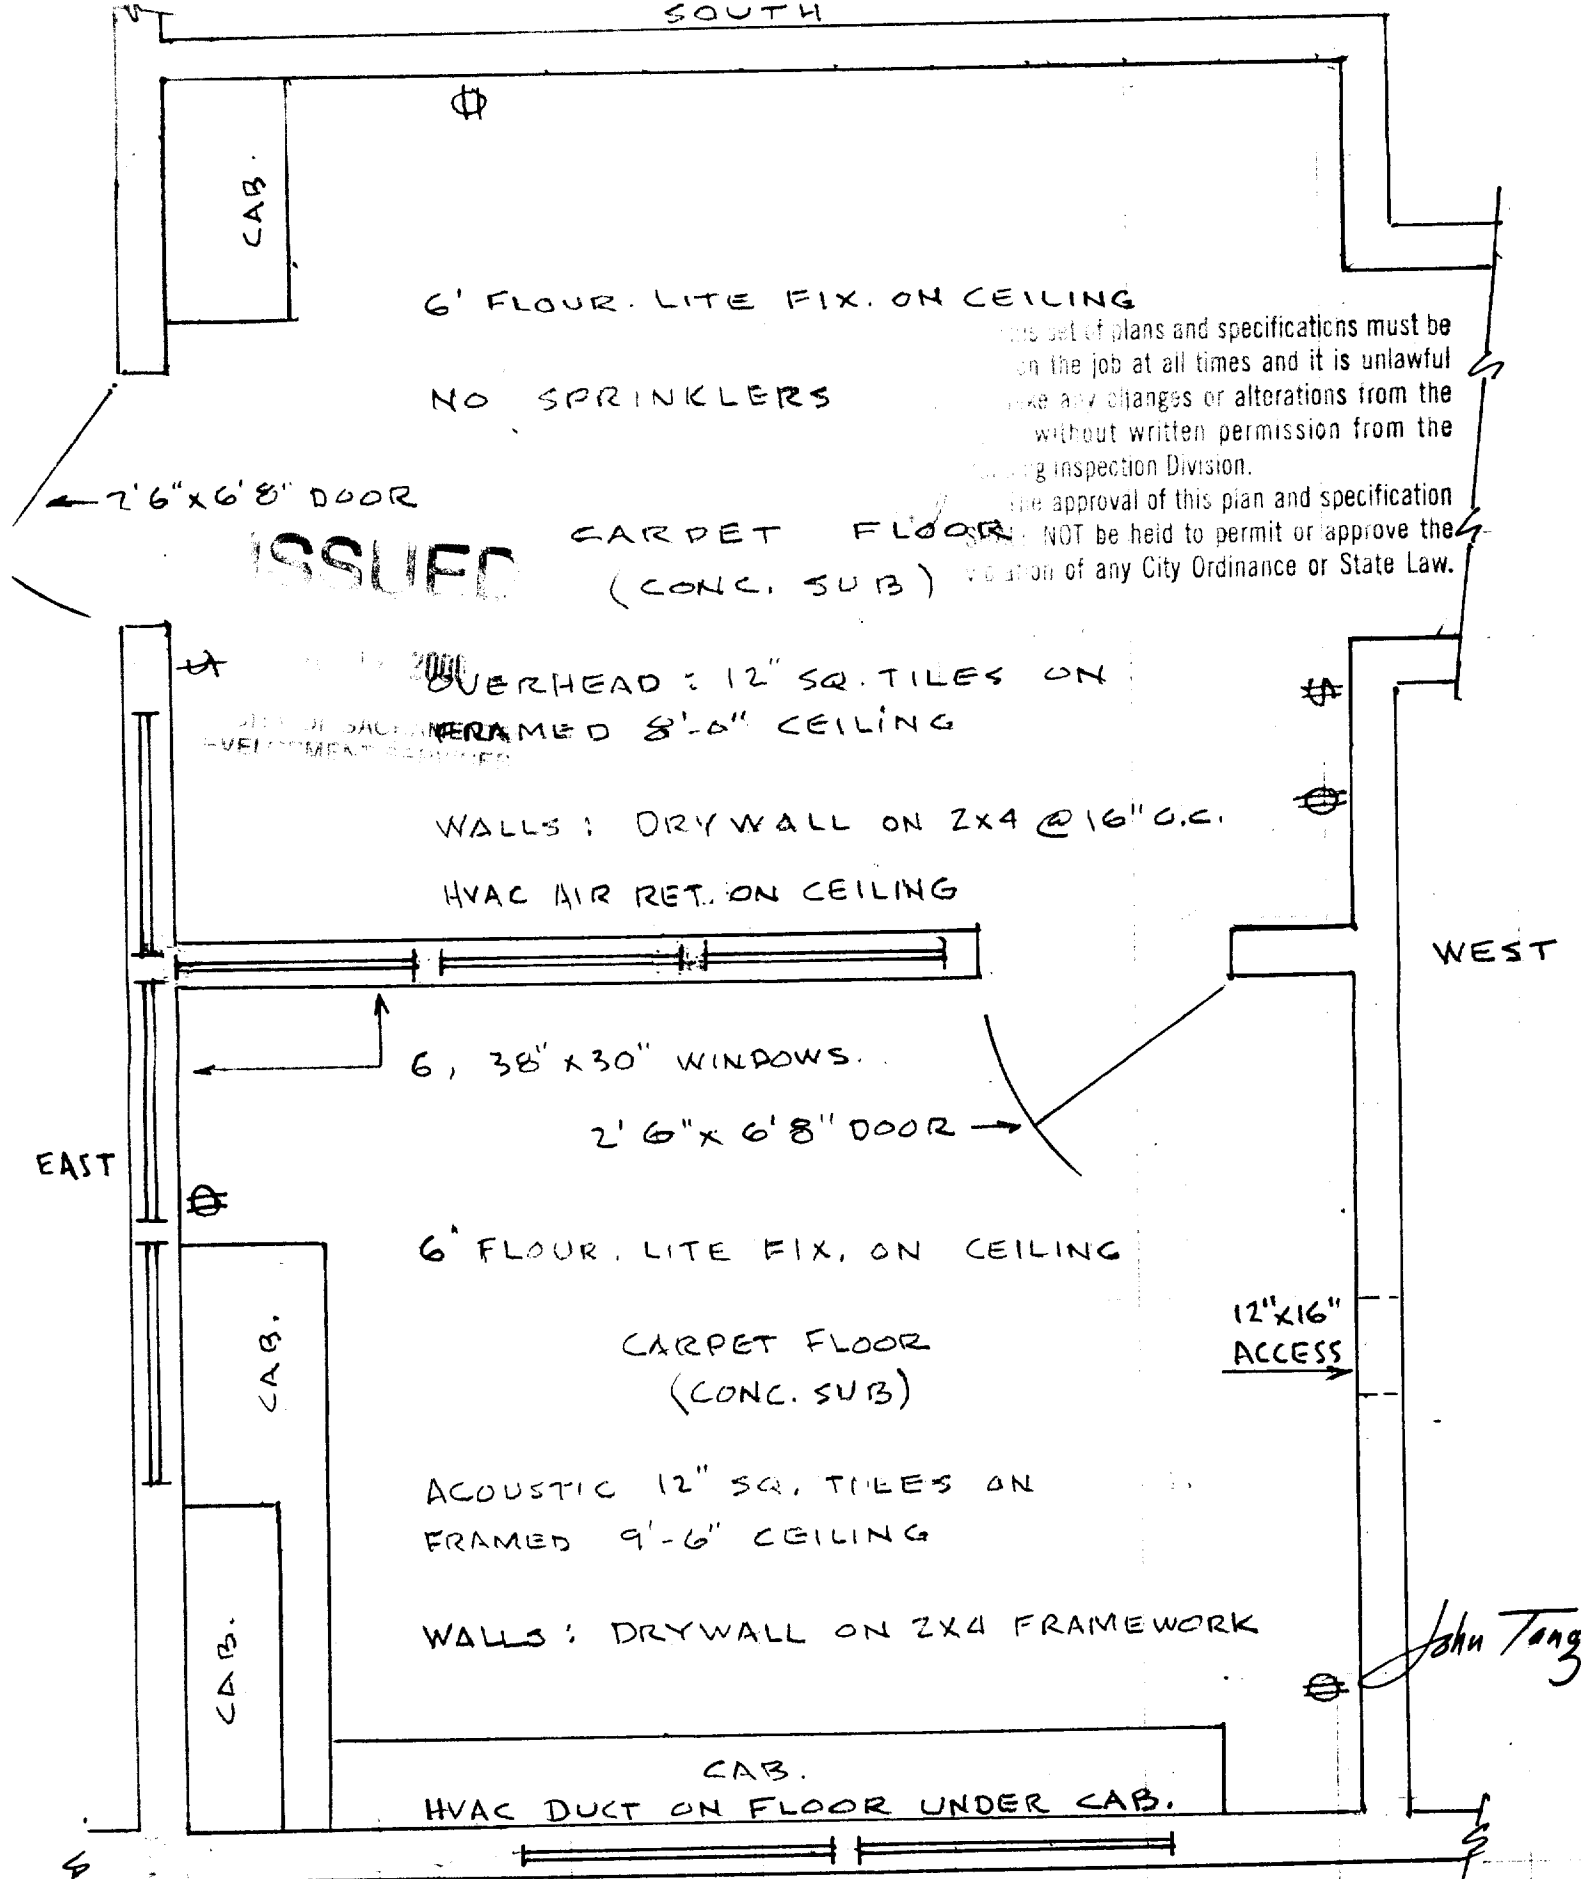 SOUTH
CAB.
6' FLOUR. LITE FIX. ON CEILING
set of plans and specifications must be
on the job at all times and it is unlawful
any changes or alterations from the
NO SPRINKLERS
without written permission from the
Inspection Division.
2'6"x6'8" DOOR
the approval of this plan and specification
NOT be held to permit or approve the
of any City Ordinance or State Law.
ISSUED
CARPET FLOOR
(CONC. SUB)
2000
OVERHEAD: 12" SQ. TILES ON
FRAMED 8'-0" CEILING
WALLS: DRYWALL ON 2x4 @ 16" O.C.
HVAC AIR RET. ON CEILING
WEST
6, 38"x30" WINDOWS.
2'6"x 6'8" DOOR
EAST
6' FLOUR. LITE FIX. ON CEILING
12"x16"
ACCESS
CAB.
CARPET FLOOR
(CONC. SUB)
ACOUSTIC 12" SQ. TILES ON
FRAMED 9'-6" CEILING
CAB.
WALLS: DRYWALL ON 2x4 FRAMEWORK
John Tang
CAB.
HVAC DUCT ON FLOOR UNDER CAB.